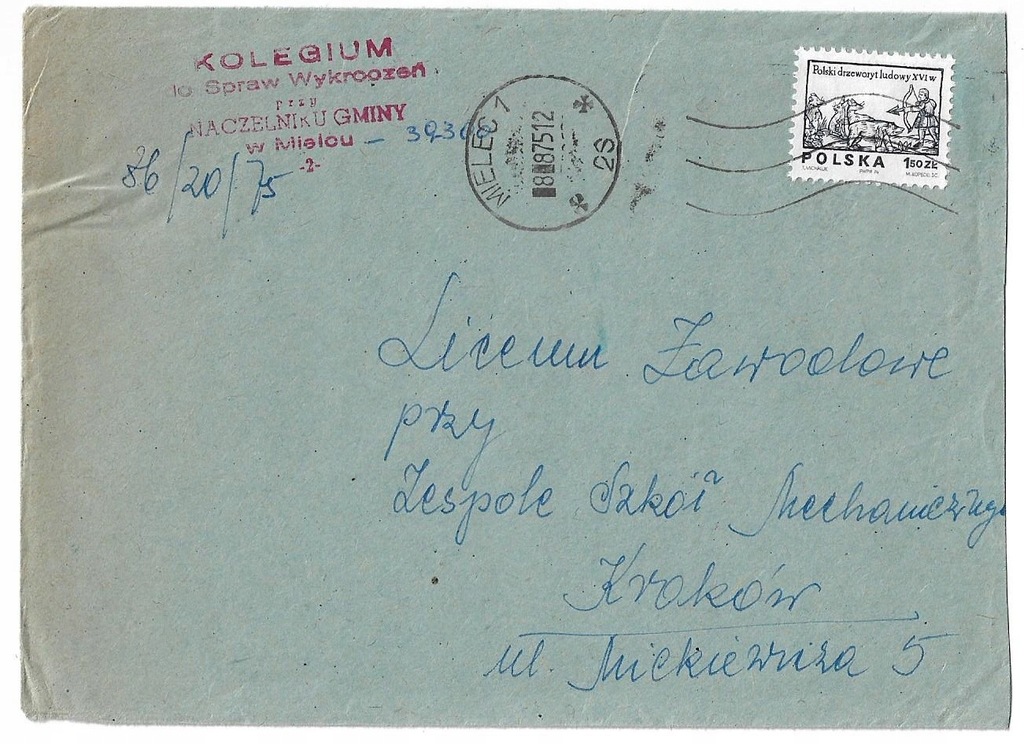 KOLEGIUM
do Spraw Wykroczeń
przy
NACZELNIKU GMINY
w Mielcu - 39300
-2-
86/20/75
MIELEC 1
87512
2S
Polski drzeworyt ludowy XVI w
POLSKA 1.50 ZŁ
Liceum Zawodowe
przy
Zespole Szkół Mechanicznych
Kraków
ul. Mickiewicza 5